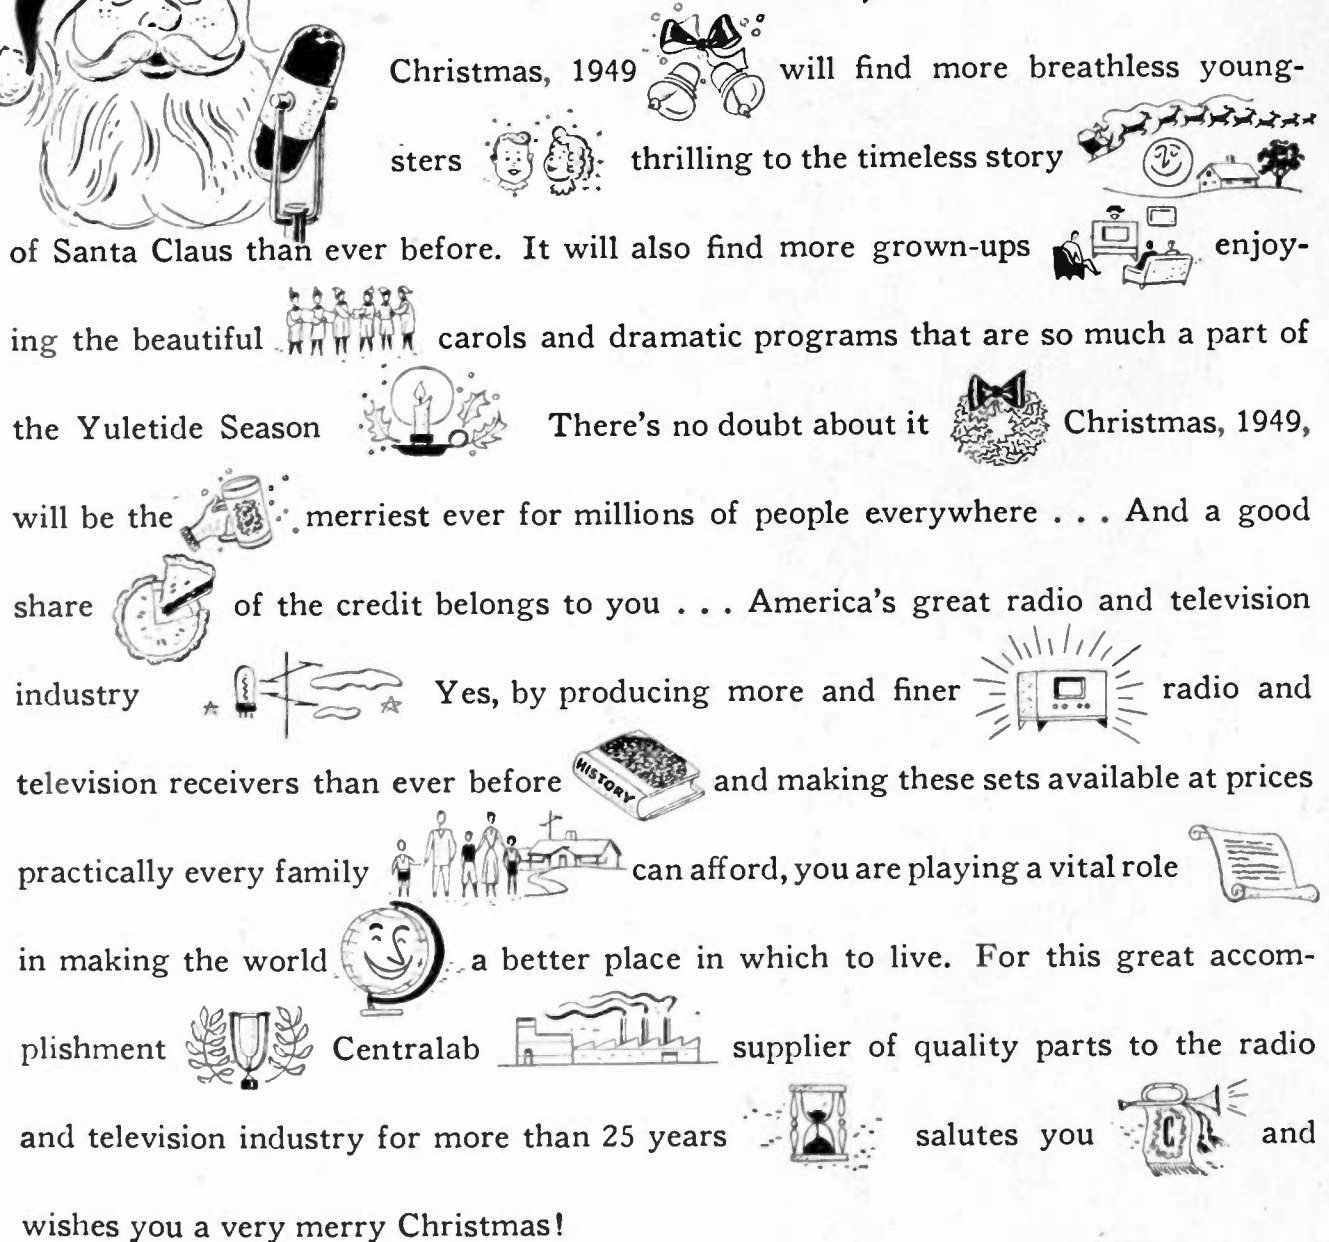 Christmas, 1949 will find more breathless young-
sters thrilling to the timeless story
of Santa Claus than ever before. It will also find more grown-ups enjoy-
ing the beautiful carols and dramatic programs that are so much a part of
the Yuletide Season There's no doubt about it Christmas, 1949,
will be the merriest ever for millions of people everywhere . . . And a good
share of the credit belongs to you . . . America's great radio and television
industry Yes, by producing more and finer radio and
television receivers than ever before HISTORY and making these sets available at prices
practically every family can afford, you are playing a vital role
in making the world a better place in which to live. For this great accom-
plishment Centralab supplier of quality parts to the radio
and television industry for more than 25 years salutes you C and
wishes you a very merry Christmas!